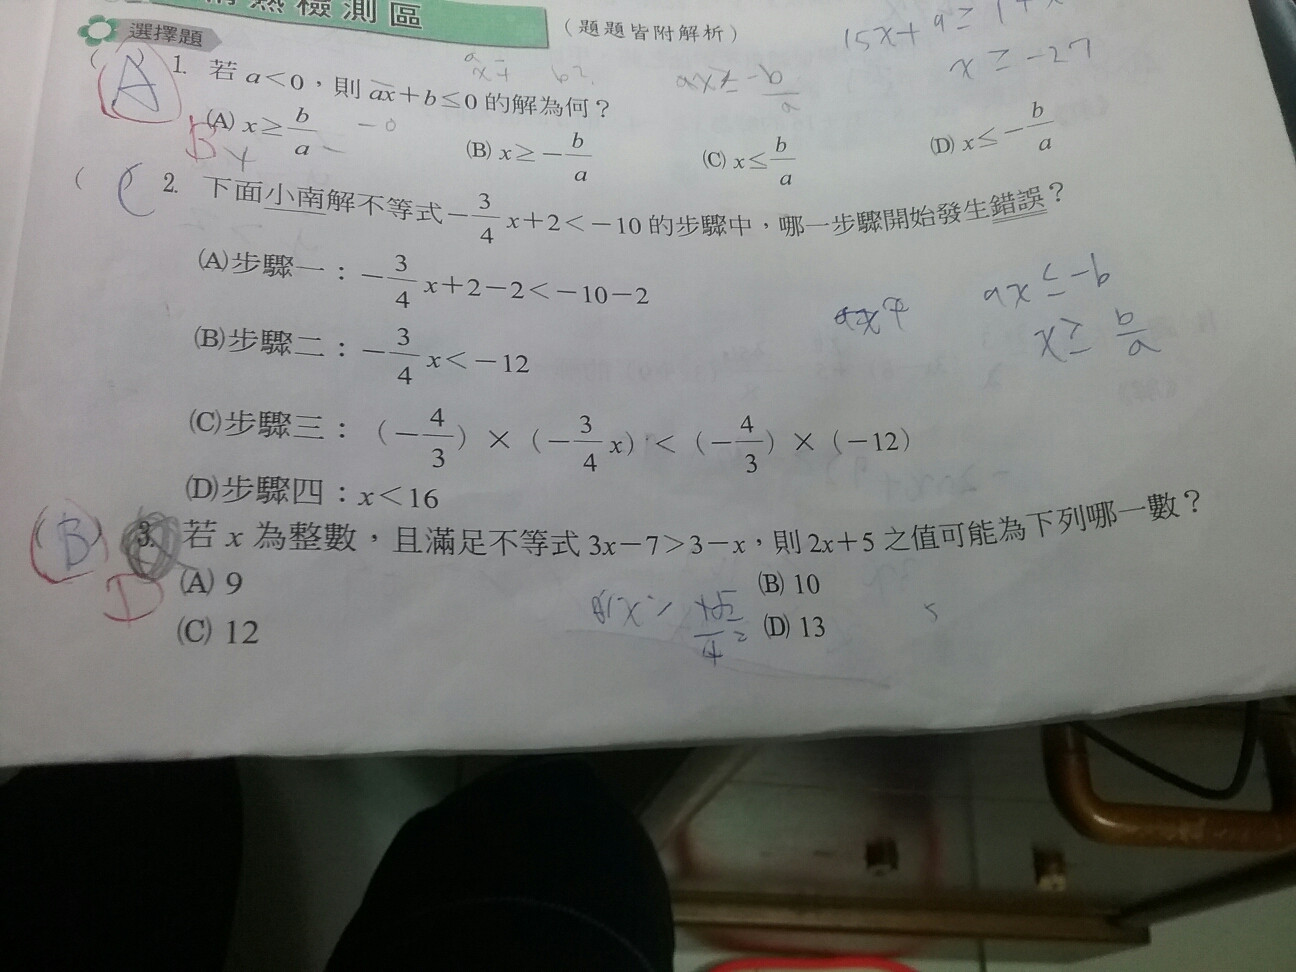 檢測區
(題題皆附解析)
選擇題
15x+9≥1+x
x≥-27
(A) 1. 若a<0,則ax+b≤0的解為何?
B
(A) x≥b/a
(B) x≥-b/a
(C) x≤b/a
(D) x≤-b/a
(C 2. 下面小南解不等式-3/4x+2<-10的步驟中,哪一步驟開始發生錯誤?
(A)步驟一:-3/4x+2-2<-10-2
(B)步驟二:-3/4x<-12
(C)步驟三:(-4/3)×(-3/4x)<(-4/3)×(-12)
(D)步驟四:x<16
ax+
ax≤-b
x≥b/a
(B) 3. 若x為整數,且滿足不等式3x-7>3-x,則2x+5之值可能為下列哪一數?
D
(A) 9
(B) 10
(C) 12
(D) 13
5